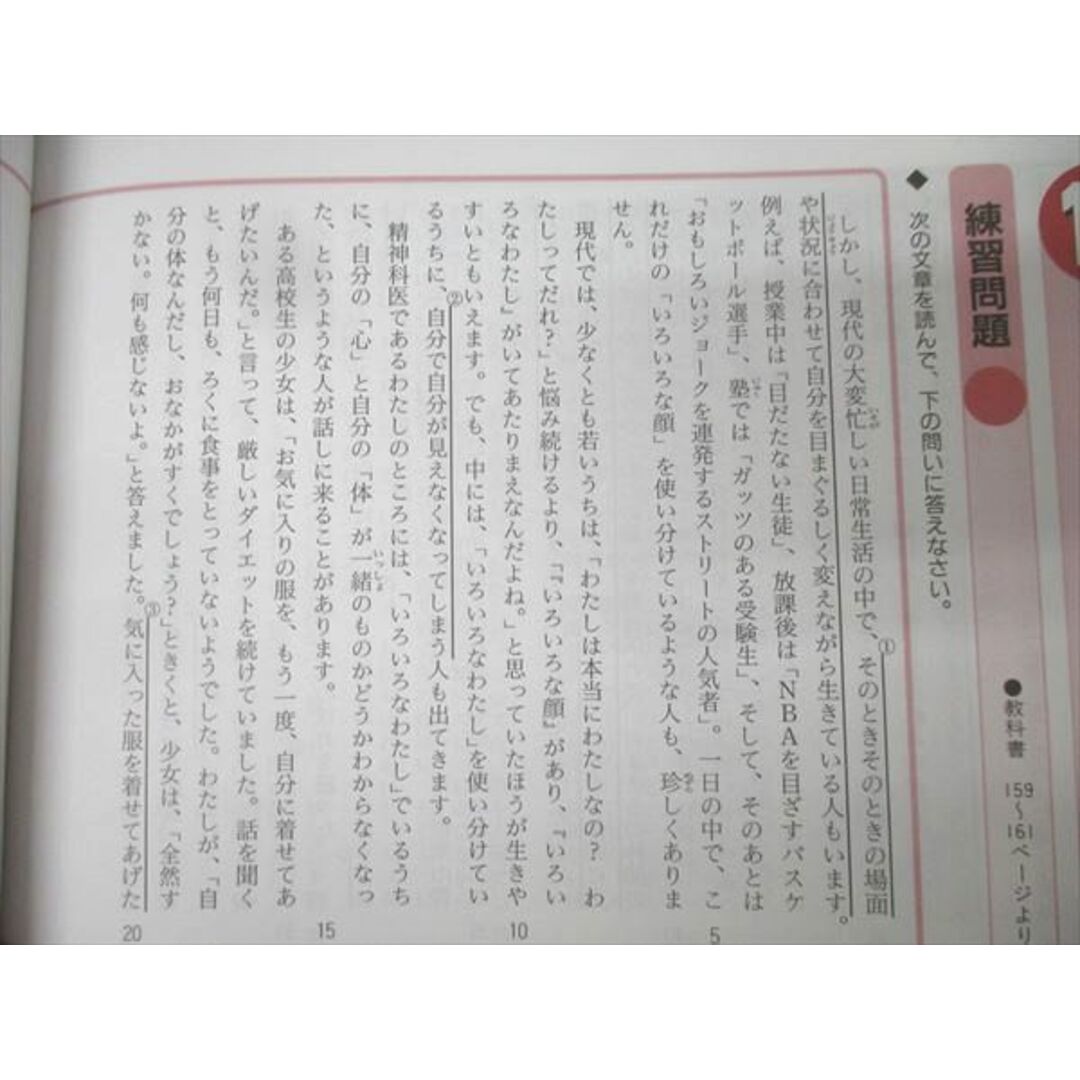 1
練習問題
●教科書 159〜161ページより
◆ 次の文章を読んで、下の問いに答えなさい。
しかし、現代の大変忙しい日常生活の中で、①そのときそのときの場面
や状況に合わせて自分を目まぐるしく変えながら生きている人もいます。
例えば、授業中は「目だたない生徒」、放課後は「NBAを目ざすバスケ
ットボール選手」、塾では「ガッツのある受験生」、そして、そのあとは
「おもしろいジョークを連発するストリートの人気者」。一日の中で、こ
れだけの「いろいろな顔」を使い分けているような人も、珍しくありま
せん。
現代では、少なくとも若いうちは、「わたしは本当にわたしなの？　わ
たしってだれ？」と悩み続けるより、「『いろいろな顔』があり、『いろい
ろなわたし』がいてあたりまえなんだよね。」と思っていたほうが生きや
すいともいえます。でも、中には、「いろいろなわたし」を使い分けてい
るうちに、②自分で自分が見えなくなってしまう人も出てきます。
精神科医であるわたしのところには、「いろいろなわたし」でいるうち
に、自分の「心」と自分の「体」が一緒のものかどうかわからなくなっ
た、というような人が話しに来ることがあります。
ある高校生の少女は、「お気に入りの服を、もう一度、自分に着せてあ
げたいんだ。」と言って、厳しいダイエットを続けていました。話を聞く
と、もう何日も、ろくに食事をとっていないようでした。わたしが、「自
分の体なんだし、おなかがすくでしょう？」ときくと、少女は、「全然す
かない。何も感じないよ。」と答えました。③気に入った服を着せてあげた
5
10
15
20